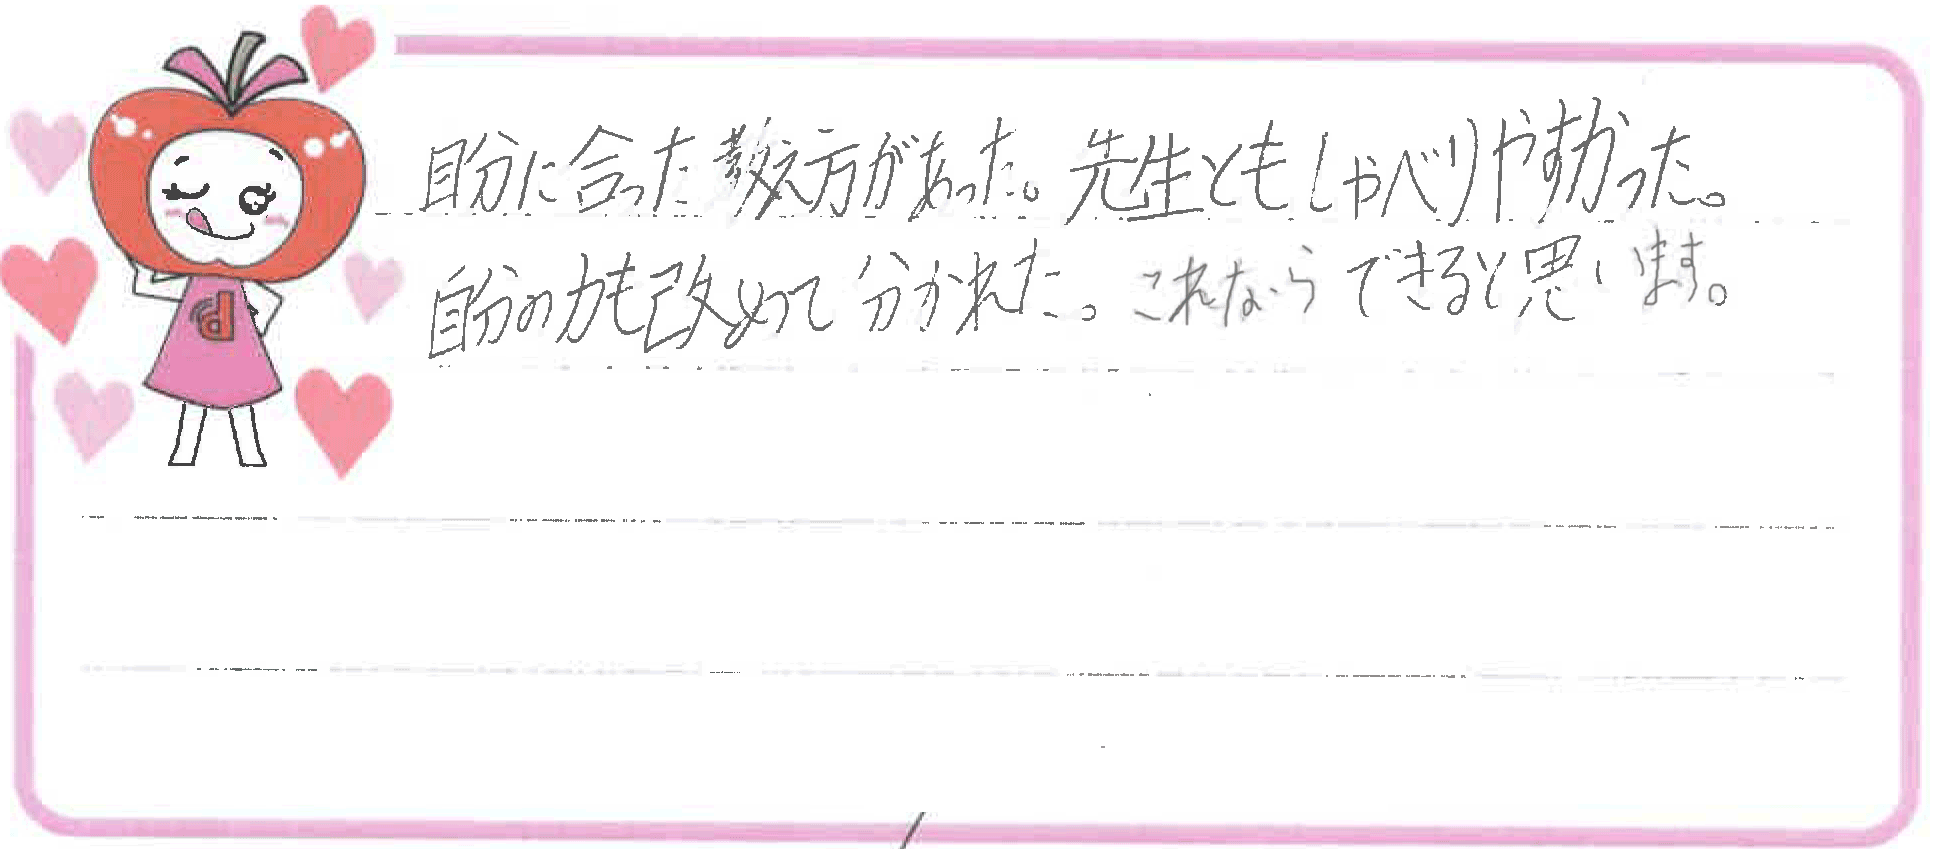 自分に合った教え方があった。先生ともしゃべりやすかった。
自分の力も改めって分かれた。これならできると思います。